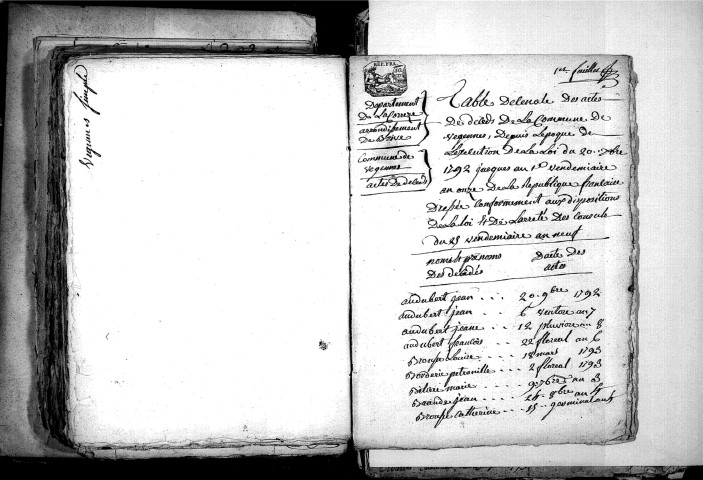 Vegennes
1er feuillet
REP. FRA.
Departement
De La Correze
arrondissement
De Brive
Commune de
vegennes
actes De deceds
Table Decenale Des actes
De deceds De La Commune De
vegennes, Depuis Lepoque de
Lexecution De La Loi du 20 7bre
1792 jusques au 1er vendemiaire
an onze De La Republique francaise
Dressée conformement aux dispositions
De La loi & De Larreté Des Consuls
du 25 vendemiaire an neuf
noms & prénoms
Des decedés
Datte Des
actes
audubert jean . . . 20 9bre 1792
audubert jean . . . 6 ventose an 7
audubert jeane . . . 12 pluviose an 8
audubert francois . . . 22 floreal an 6
Broupe Louise . . . 18 mars 1793
Borderie petronille . . . 2 floreal 1793
marie . . . 9 7bre an 3
jean . . . 26 8bre an
Broupe Catherine . . . 15 germinal an